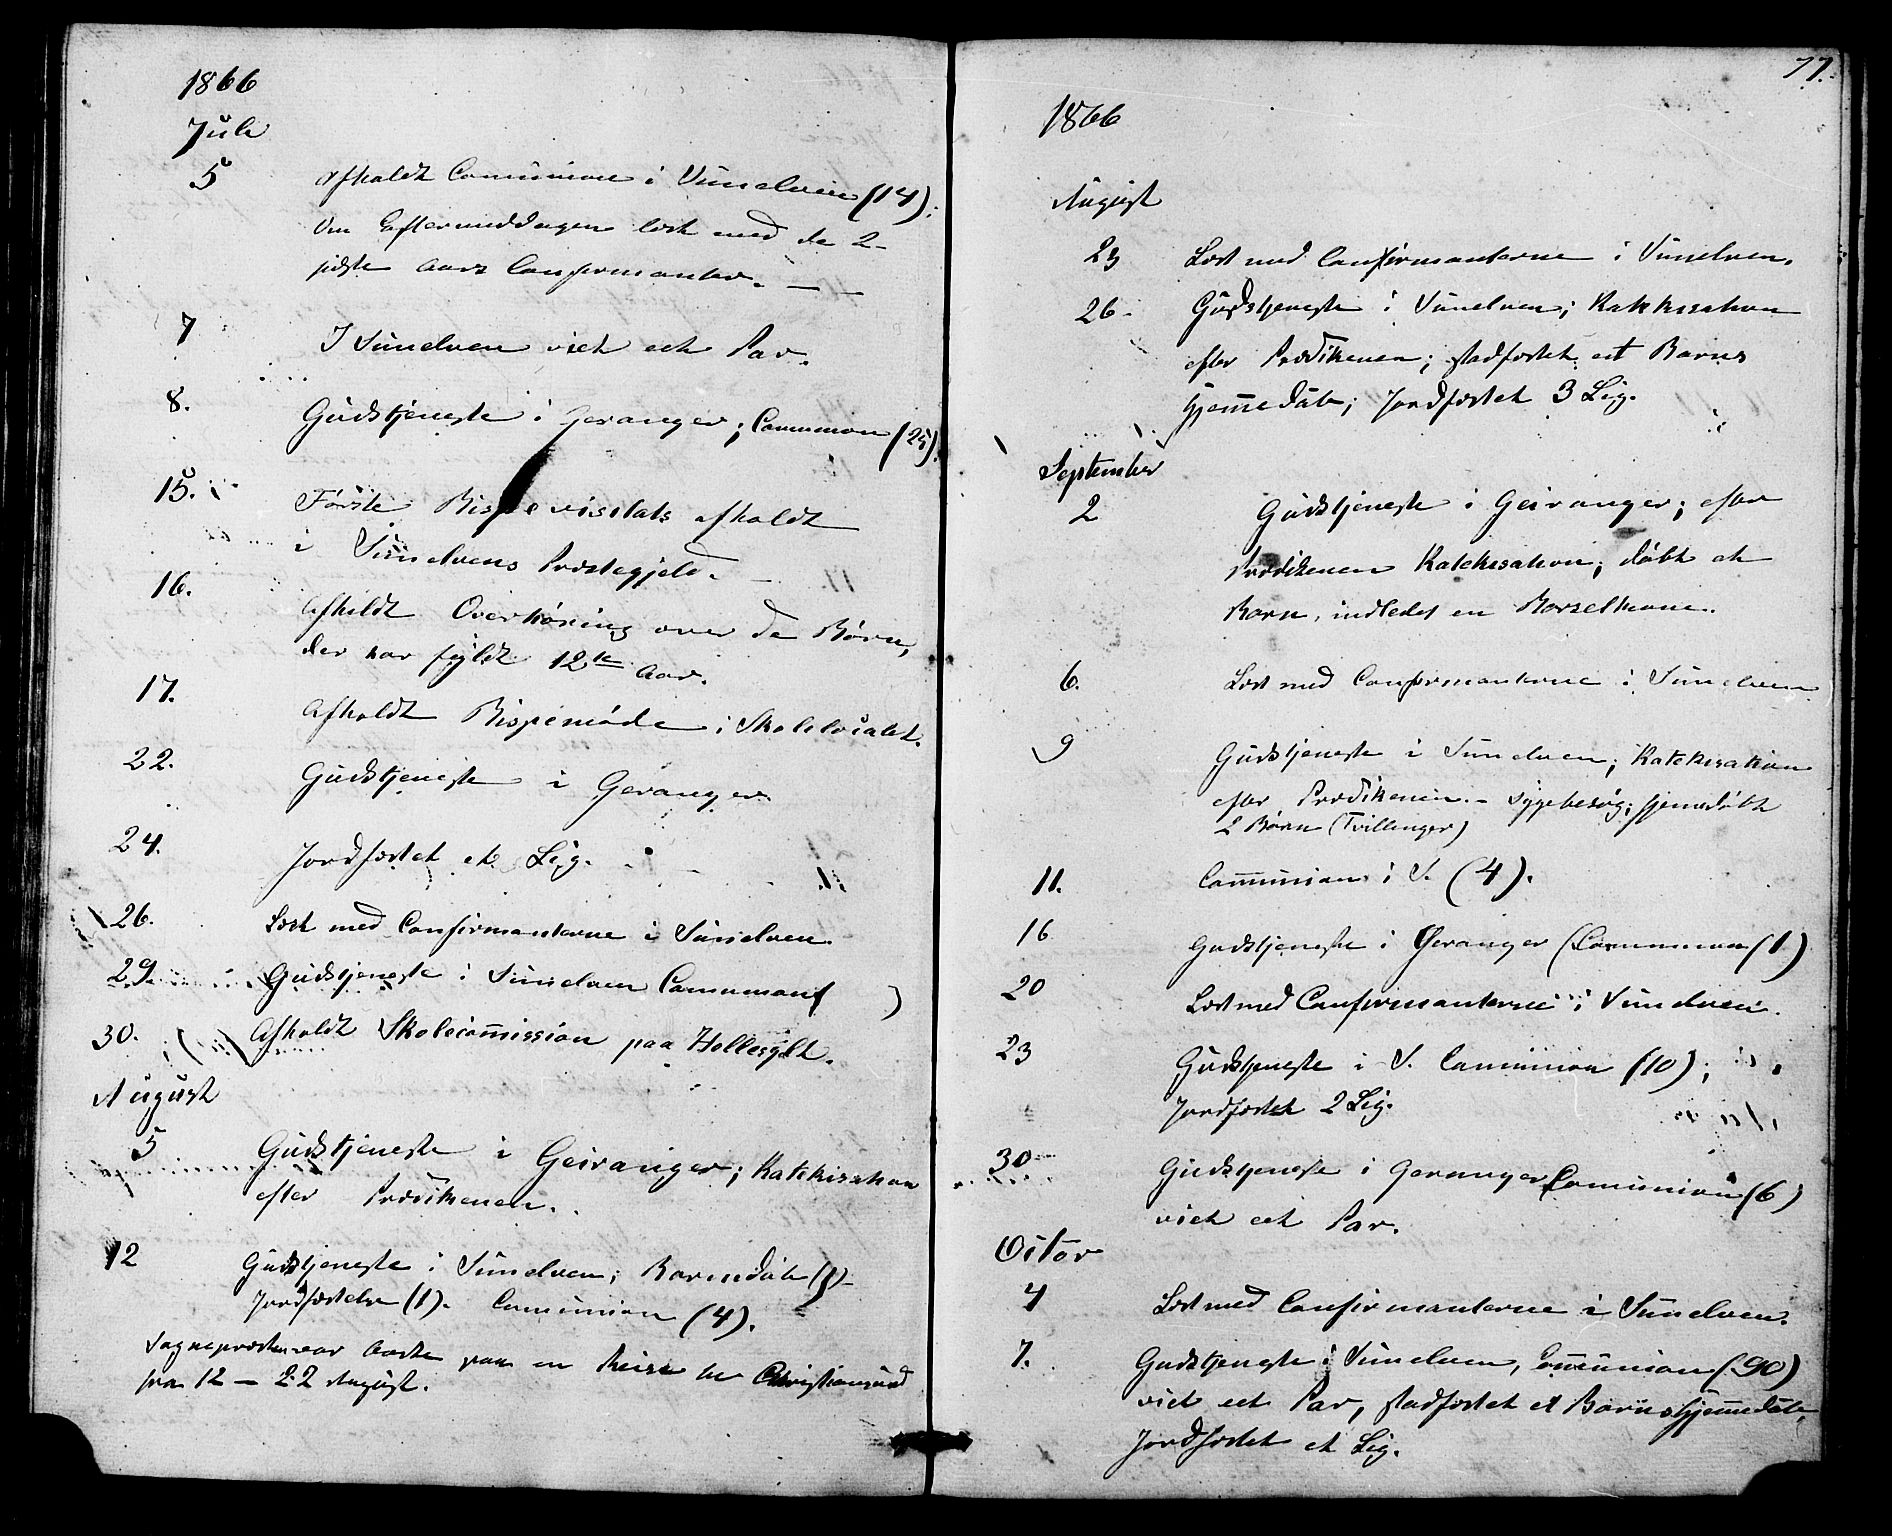 1866
Juli
5 Afholdt Communion i Sunelven (14);
Om Eftermiddagen læst med de 2-
sidste Aars Confirmanter.
7 I Sunelven viet eet Par.
8. Gudstjeneste i Geranger; Communion (25).
15. Første Bispevisitats afholdt
i Sunelvens Præstegjeld.
16. Afholdt Overhøring over de Børn,
der har fyldt 12te Aar.
17. Afholdt Bispemøde i Skolelocalet.
22. Gudstjeneste i Geranger.
24. Jordfæstet et Lig.
26. Læst med Confirmanterne i Sunelven.
29. Gudstjeneste i Sunelven Communion ( )
30. Afholdt Skolecom̅ission paa Hellesylt.
August
5 Gudstjeneste i Geiranger; Katekisation
efter Prædikenen.
12 Gudstjeneste i Sunelven; Barnedåb (1)-
Jordfæstelse (1). Communion (4).
Sognepræsten var borte paa en Reise til Christiansund
fra 12 - 22 August.
77.
1866
August
23 Læst med Confirmanterne i Sunelven.
26- Gudstjeneste i Sunelven; Katekisation
efter Prædikenen; stadfæstet et Barns
Hjem̅edåb; Jordfæstet 3 Lig.
September
2 Gudstjeneste i Geiranger; efter
Prædikenen Katekisation; døbt et
Barn, indledet en Barselkone.
6. Læst med Confirmanterne i Sunelven
9 Gudstjeneste i Sunelven; Katekisation
efter Prædikenen. - Sygebesøg; hjemmedøbt
2 Børn (Tvillinger)
11. Com̅union i S. (4).
16 Gudstjeneste i Geranger (Communion (1)
20 Læst med Confirmanterne i Sunelven.
23 Gudstjeneste i S. Communion (10);
Jordfæstet 2 Lig.
30 Gudstjeneste i Geranger Communion (6)
viet eet Par.
Octbr
4 Læst med Confirmanterne i Sunelven.
7. Gudstjeneste i Sunelven, Com̅union (90)
viet eet Par, stadfæstet et Barns Hjem̅edåb,
Jordfæstet et Lig.